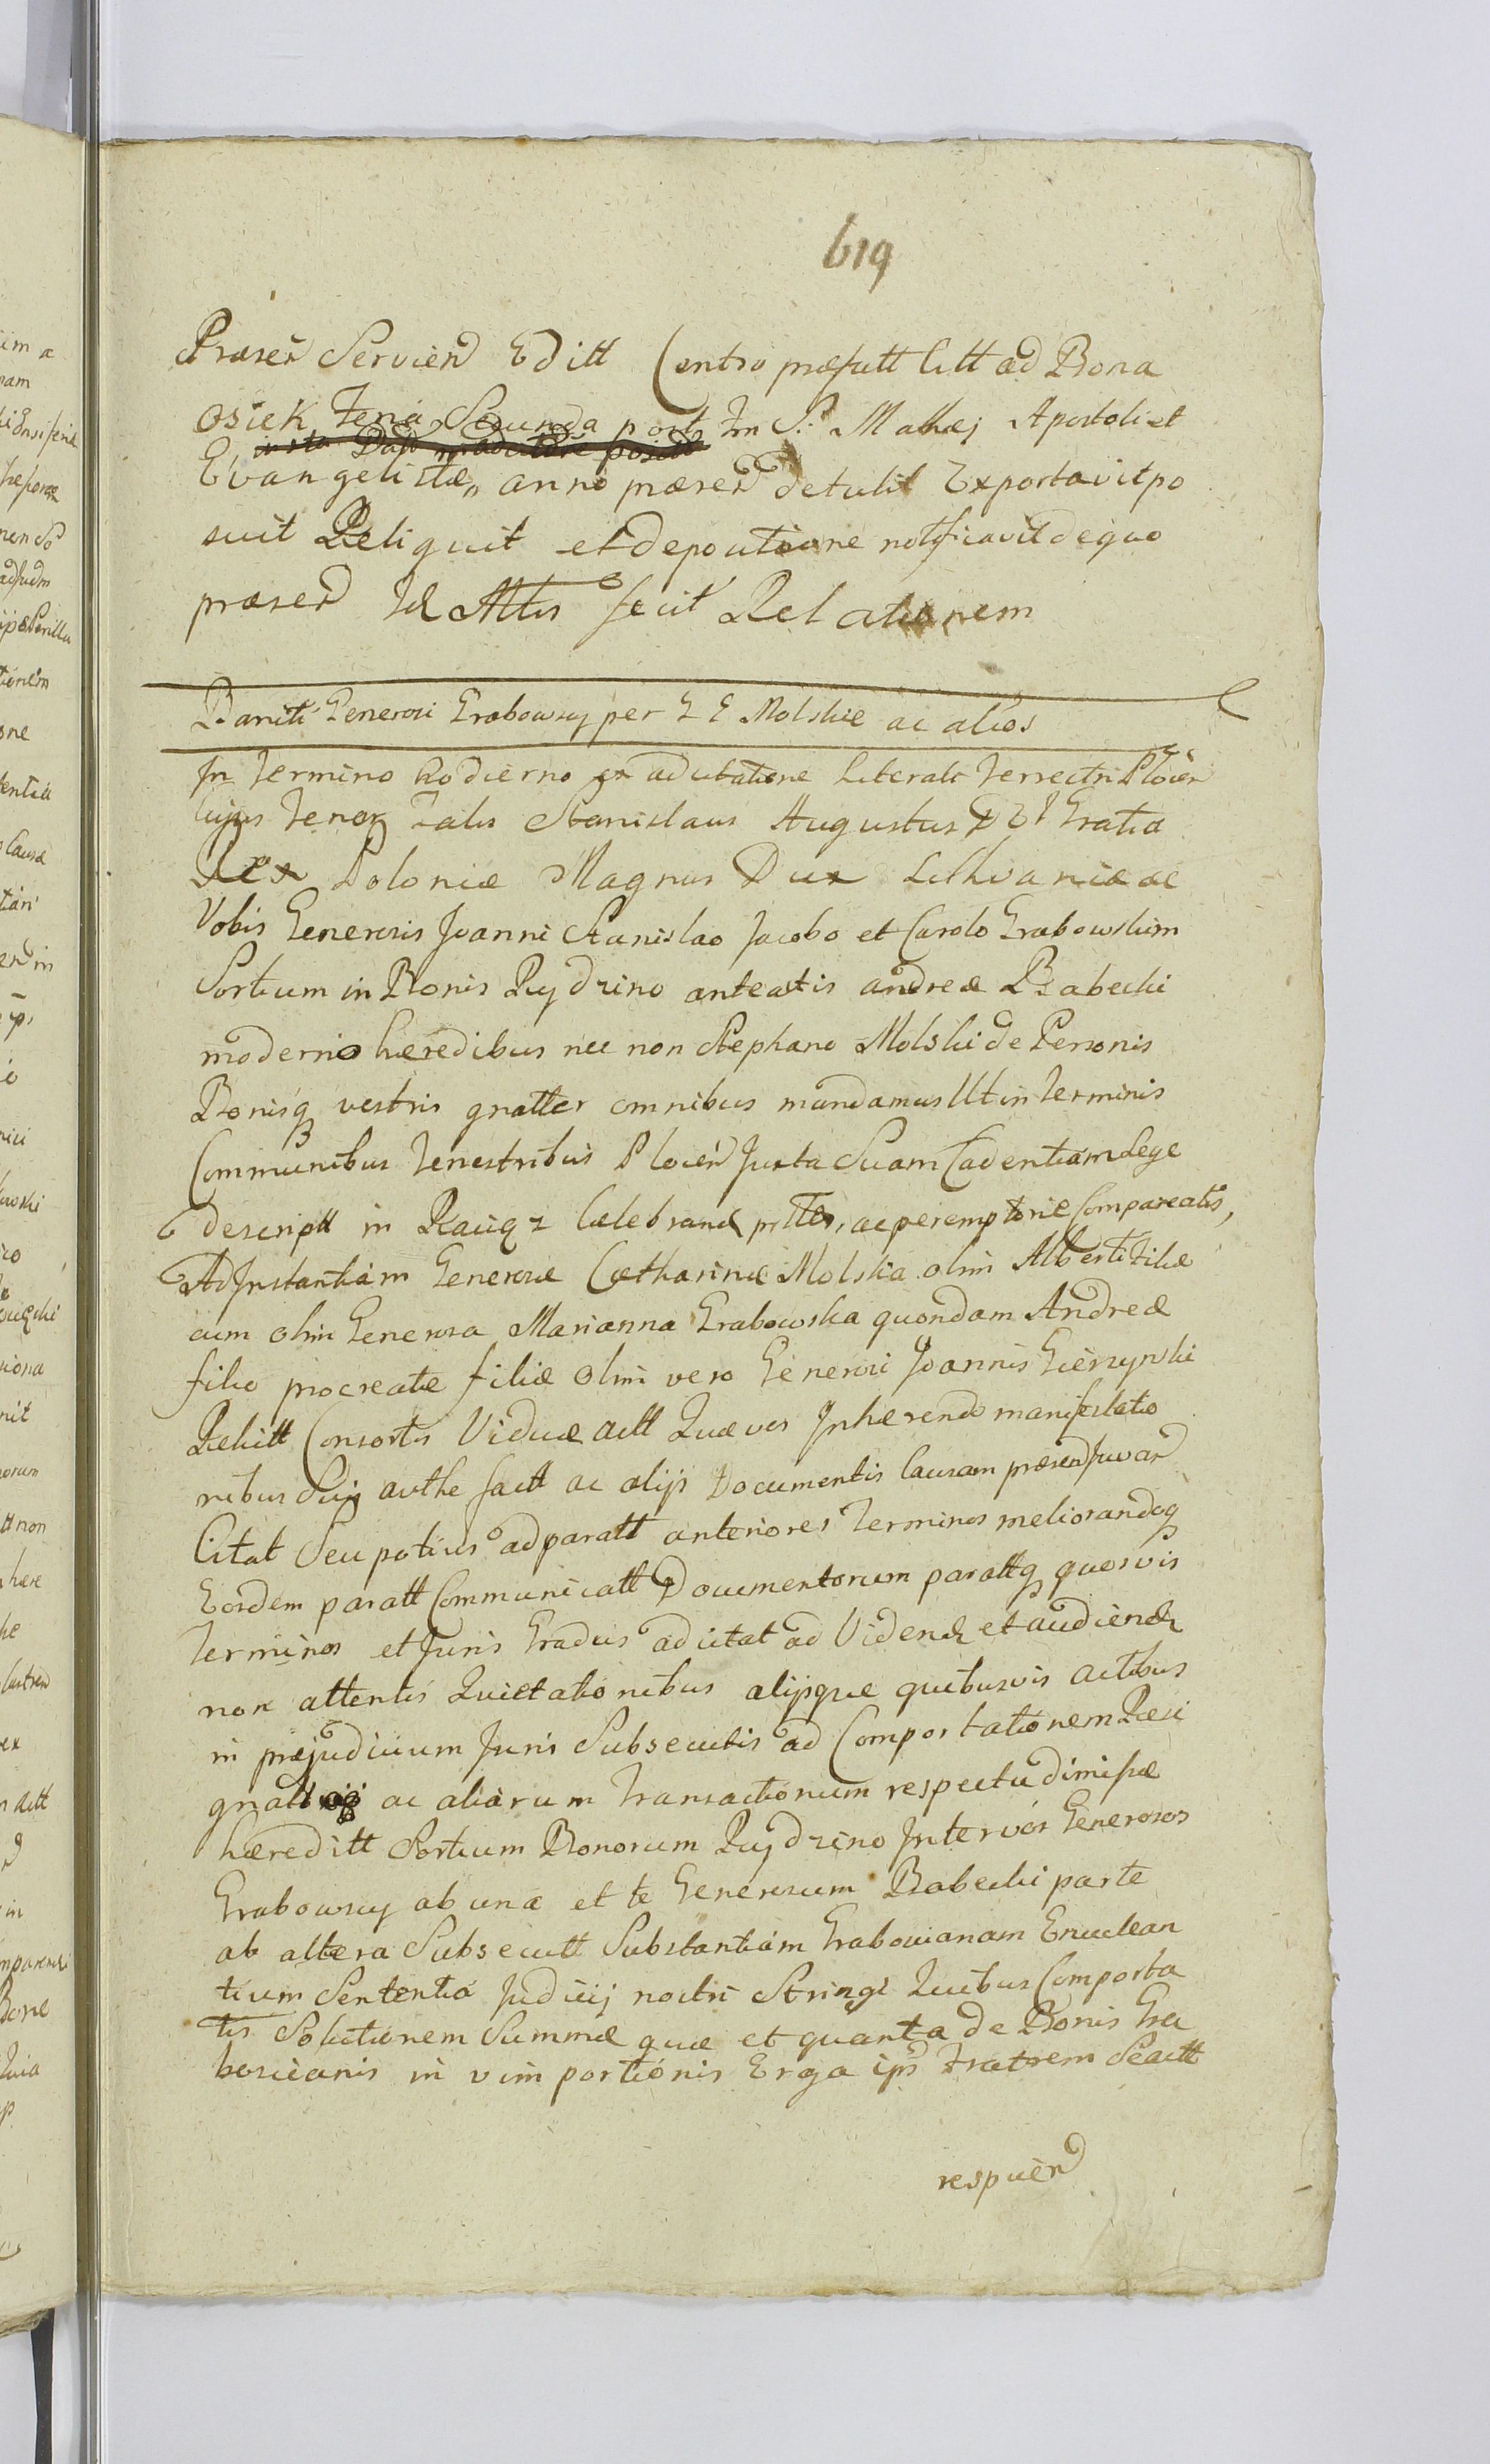 619
Præsen Servien Editt Contro præfatt litt ad Bona
Osiek Feria Secunda post Fm S: Mathæj Apostoli et
Evangelistæ, anno præsen detulit Exportavit po
suit Reliquit et depositione notificavit de quo
præsen Id Mtis fecit Relationem
Baniti Generosi Grabowscy per G G Molskie ac alios
In Termino hodierno ex adcitatione Literali Terrestri Plocen
Cujus Tenor Talis Stanislaus Augustus D G Gratia
Rex Poloniæ Magnus Dux Lithvaniæ ac
Vobis Generosis Joanni Stanislao Jacobo et Carolo Grabowskim
Sortium in Bonis Rydzino anteactis andreæ Babecki
moderno hæredibus nec non Stephano Molski de Personis
Bonisq vestris gnalter omnibus mandamus Ut in Terminis
Communibus Terrestribus Plocen Juxta Suam Cadentiam Lege
descriptt in Raciąz Celebrand prtter, ac peremptorie Compareatis,
Ad Instantiam Generosæ Catharinæ Molskia olim Alberti Filiæ
cum olim Generosa Marianna Grabowska quondam Andreæ
filio procreatæ filiæ olim vero Generosi Joannis Gierzynski
Relictt Consortis Viduæ actt Quæ vos Inhærendo manifestatio
nibus Suij authe factt ac alijs Documentis Causam præsen Juvan
Citat Seu potius ad paratt anteriores Terminos meliorandoq
Eosdem paratt Communicatt Documentorum parattq quosvis
Terminos et Juris Gradus adcitat ad Videnđ et audienđ
non attentis Quietationibus alijsque quibusvis actibus
in præjudicium Juris Subsecutis ad Comportationem Resi
gnatt ac aliarum Transactionum respectu dimissæ
hæreditt Sortium Bonorum Rydzino Inter vos Generosos
Grabowscy ab una et te Generosum Babecki parte
ab altera Subsecutt Substantiam Grabovianam Enuclean
tium Sententia Judicij nostri Stringi Quibus Comporta
tis Solutionem Summæ quæ et quanta de Bonis Gra
bovianis in vim portionis Erga ips Fratrem Seactt
respuen